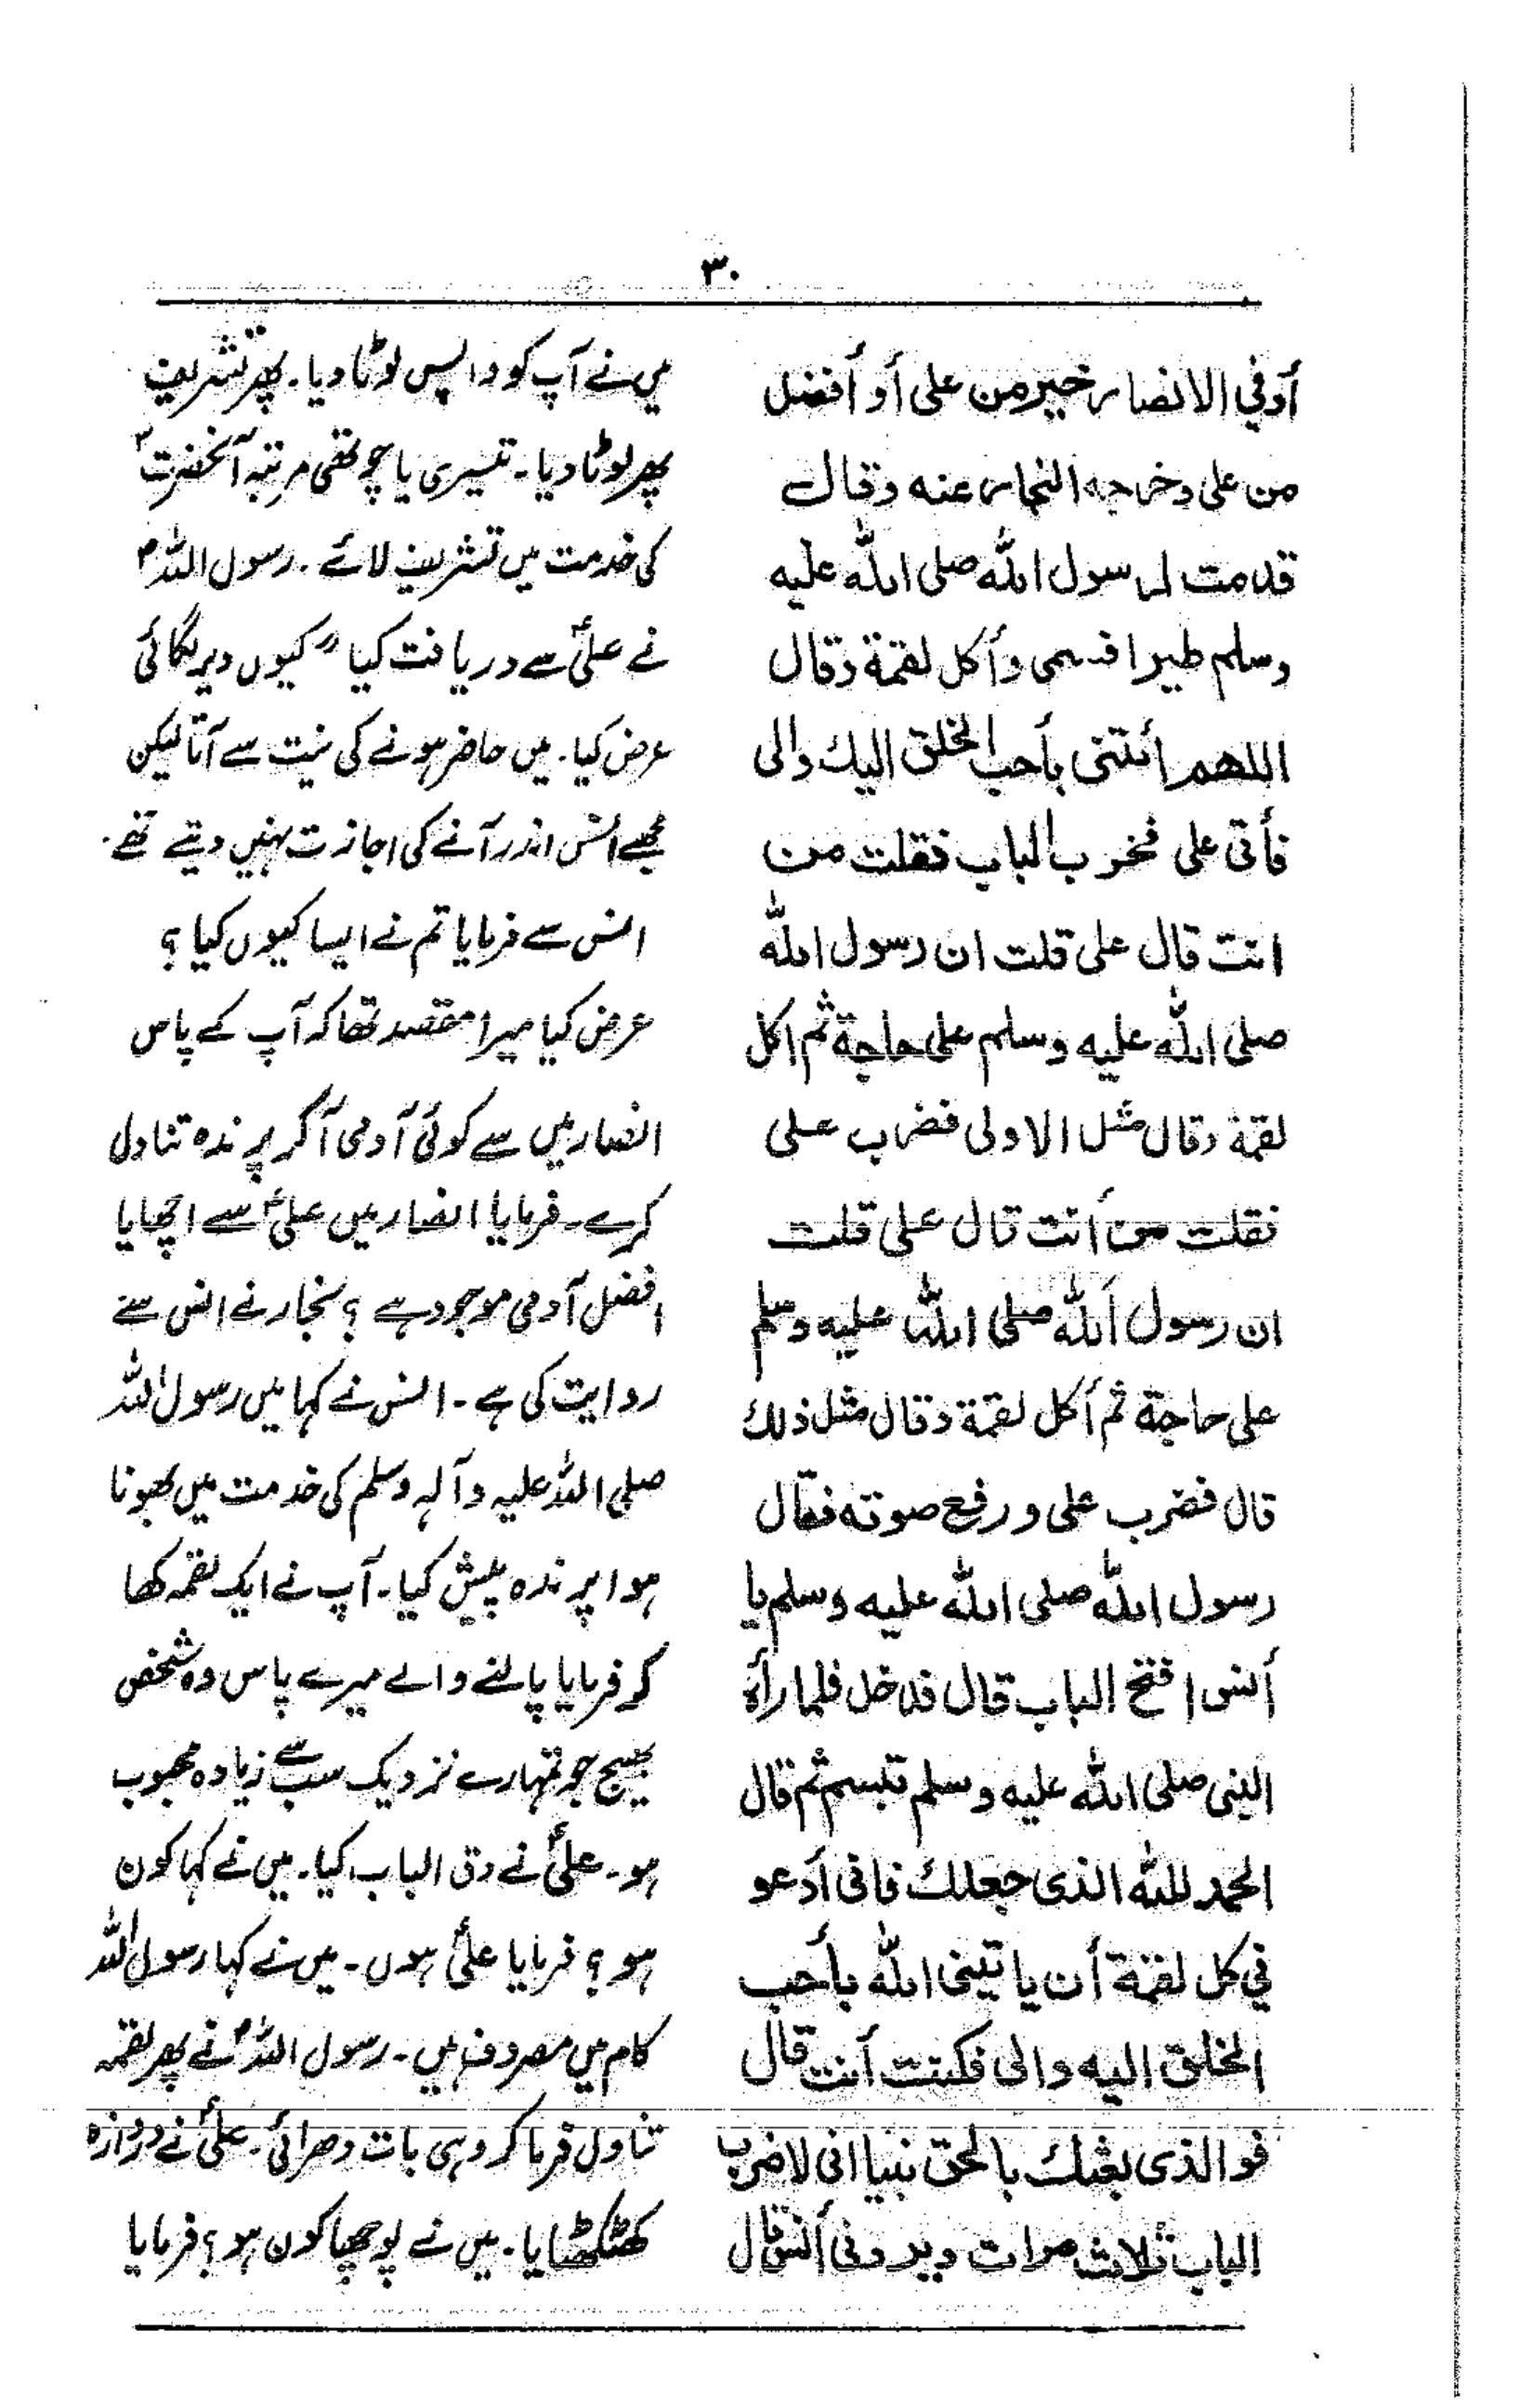 ۳۰
أوفي الانصار خير من على أو أفضل
من على وخرجه النجار عنه وقال
قدمت لرسول الله صلى الله عليه
وسلم طيرا فسمى وأكل لقمة وقال
اللهم أئتنى بأحب الخلق اليك والى
فأتى على فضرب الباب فقلت من
انت قال على قلت ان رسول الله
صلى الله عليه وسلم على حاجة ثم اكل
لقمة وقال مثل الاولى فضرب على
فقلت من أنت قال على قلت
ان رسول الله صلى الله عليه وسلم
على حاجة ثم أكل لقمة وقال مثل ذلك
قال فضرب على ورفع صوته فقال
رسول الله صلى الله عليه وسلم يا
أنس افتح الباب قال فدخل فلما رآه
النبى صلى الله عليه وسلم تبسم ثم قال
الحمد لله الذى جعلك فانى أدعو
في كل لقمة أن ياتينى الله بأحب
الخلق اليه والى فكنت أنت قال
فوالذى بعثك بالحق نبيا انى لاضرب
الباب ثلاث مرات ويردنى أنس قال
میں نے آپ کو واپس لوٹا دیا۔ پھر تشریف
پھر لوٹا دیا۔ تیسری یا چوتھی مرتبہ آنحضرتؐ
کی خدمت میں تشریف لائے۔ رسول اللہؐ
نے علیؑ سے دریافت کیا "کیوں دیر لگائی
عرض کیا۔ میں حاضر ہونے کی نیت سے آتا لیکن
مجھے انس اندر آنے کی اجازت نہیں دیتے تھے۔
انس سے فرمایا تم نے ایسا کیوں کیا؟
عرض کیا میرا مقصد تھا کہ آپ کے پاس
انصار میں سے کوئی آدمی آ کر پرندہ تناول
کرے۔ فرمایا انصار میں علیؑ سے اچھا یا
افضل آدمی موجود ہے؟ نجار نے انس سے
روایت کی ہے۔ انس نے کہا میں رسول اللہ
صلی اللہ علیہ وآلہ وسلم کی خدمت میں بھونا
ہوا پرندہ پیش کیا۔ آپ نے ایک لقمہ کھا
کر فرمایا پالنے والے میرے پاس وہ شخص
بھیج جو تمہارے نزدیک سب سے زیادہ محبوب
ہو۔ علیؑ نے دق الباب کیا۔ میں نے کہا کون
ہو؟ فرمایا علیؑ ہوں۔ میں نے کہا رسول اللہ
کام میں مصروف ہیں۔ رسول اللہؐ نے پھر لقمہ
تناول فرما کر وہی بات دھرائی۔ علیؑ نے دروازہ
کھٹکھٹایا۔ میں نے پوچھا کون ہو؟ فرمایا